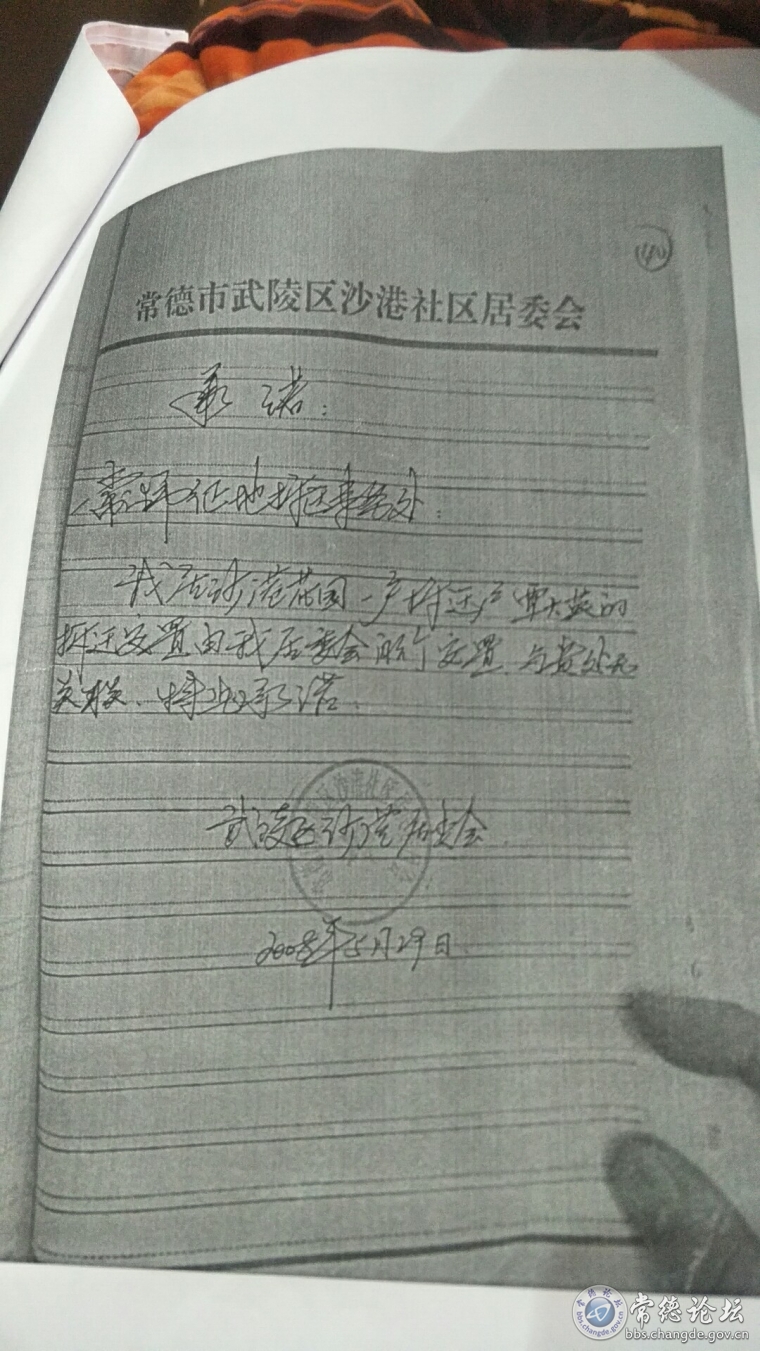 140
常德市武陵区沙港社区居委会
承诺:
常德市征地拆迁事务处:
我居沙港花园一户拆迁户覃大英的
拆迁安置由我居委会进行安置,与贵处无
关联、特此承诺。
武陵区沙港居委会
2008年5月29日
常德论坛
bbs.changde.gov.cn